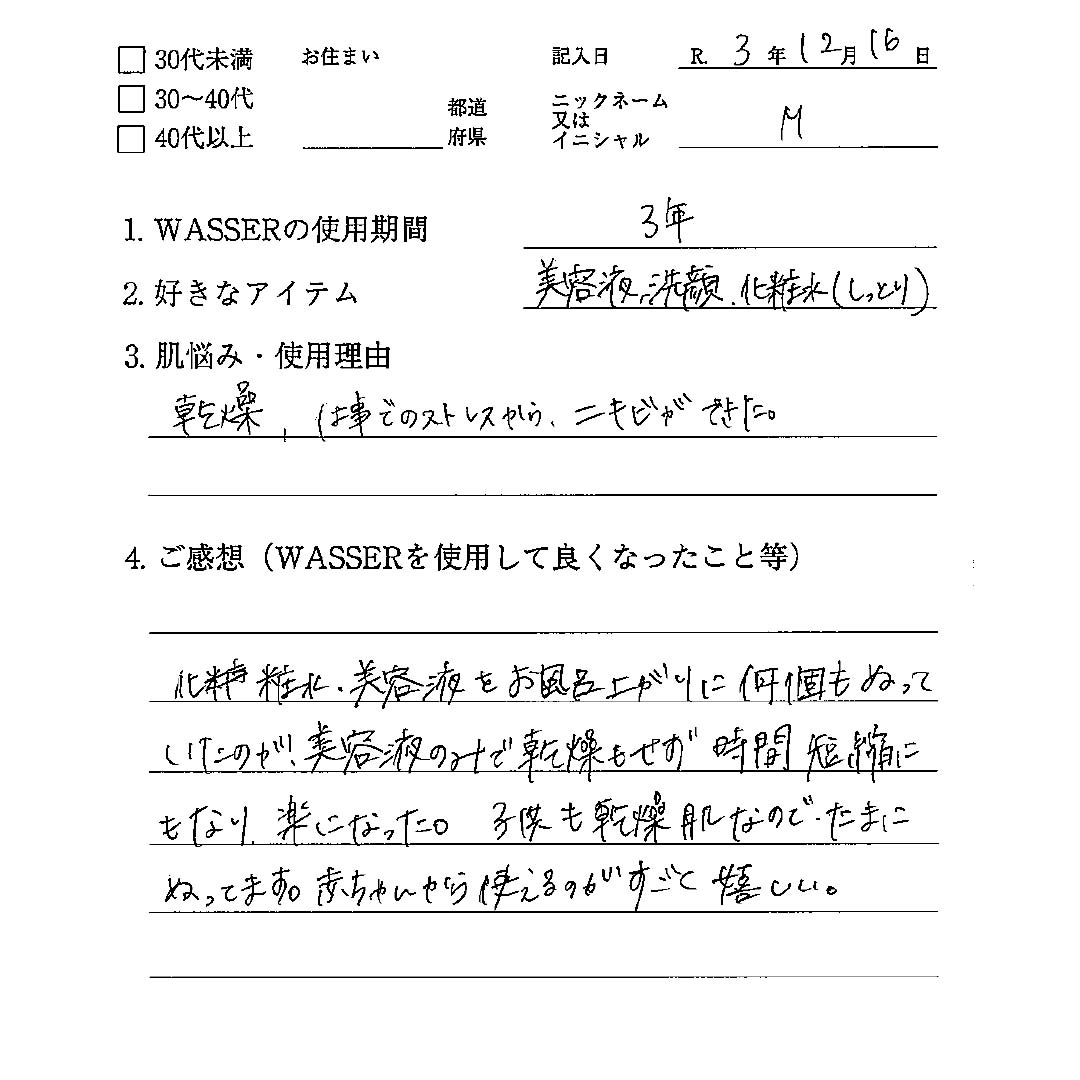 30代未満 お住まい 記入日 R. 3 年 12 月 16 日
30〜40代 都道 ニックネーム
又は M
40代以上 府県 イニシャル
1. WASSERの使用期間 3年
2. 好きなアイテム 美容液、洗顔、化粧水(しっとり)
3. 肌悩み・使用理由
乾燥、仕事でのストレスから、ニキビができた。
4. ご感想（WASSERを使用して良くなったこと等）
化粧水、美容液をお風呂上がりに何個もぬって
いたのが、美容液のみで乾燥もせず時間短縮に
もなり、楽になった。子供も乾燥肌なので、たまに
ぬってます。赤ちゃんから使えるのがすごく嬉しい。